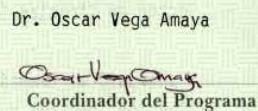 Dr. Oscar Vega Amaya
Oscar Vega Amaya
Coordinador del Programa